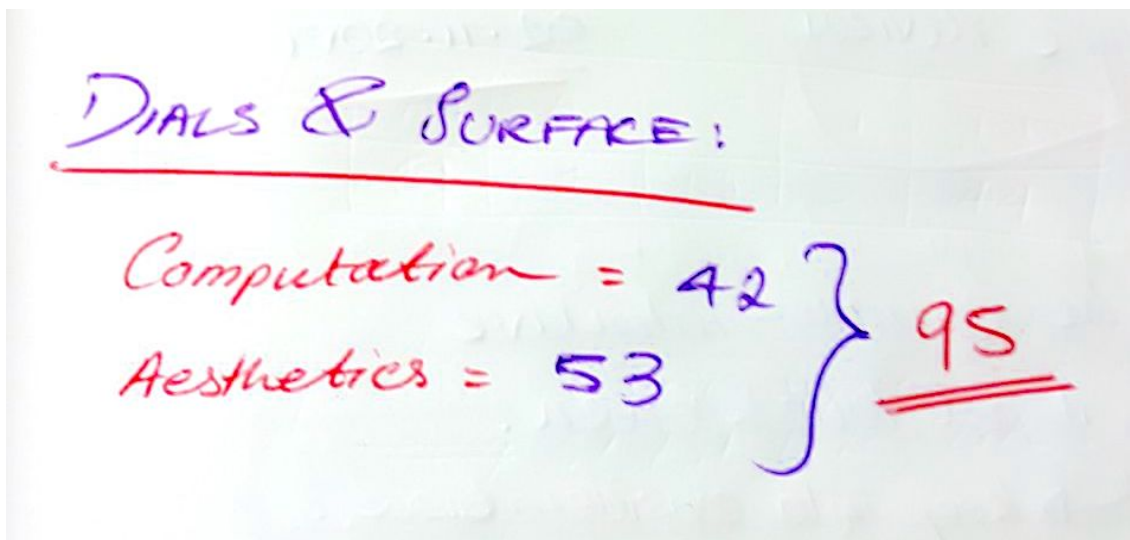 DIALS & SURFACE:
Computation = 42
Aesthetics = 53
95